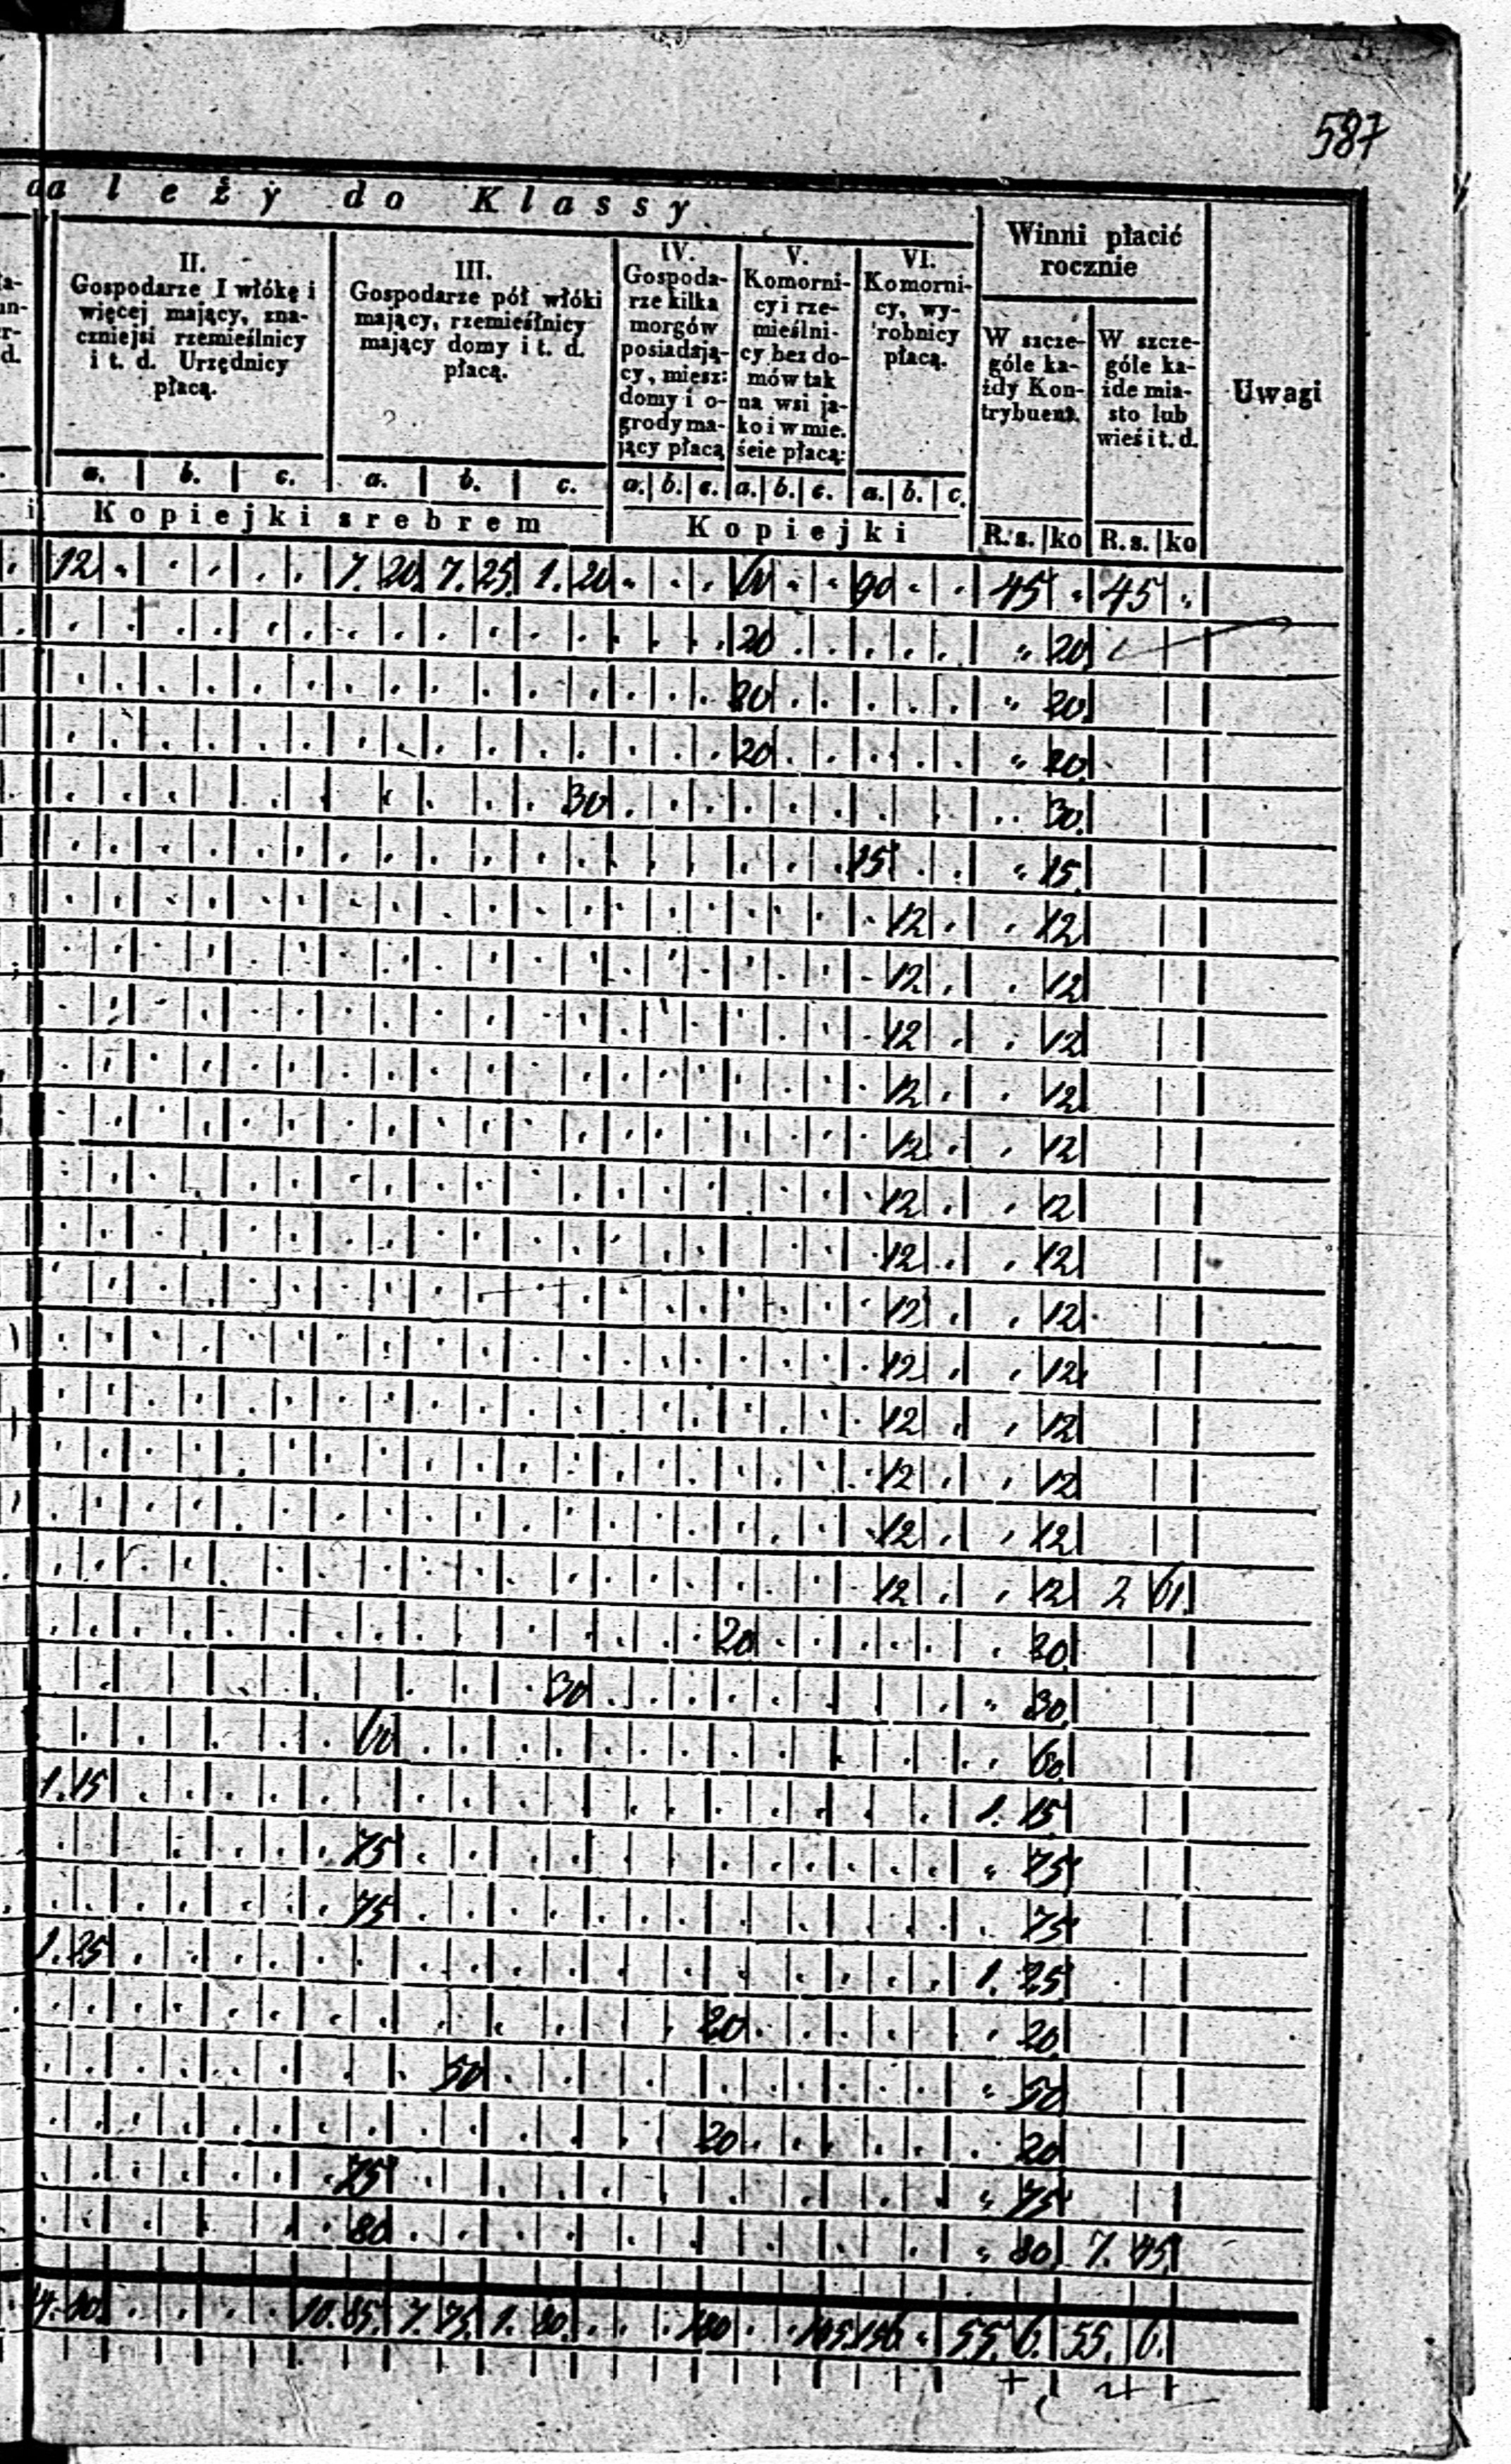 587
ależy do Klassy
II.
Gospodarze I włókę i
więcej mający, zna-
czniejsi rzemieślnicy
i t. d. Urzędnicy
płacą.
III.
Gospodarze pół włóki
mający, rzemieślnicy
mający domy i t. d.
płacą.
IV.
Gospoda-
rze kilka
morgów
posiadają-
cy, miesz:
domy i o-
grody ma-
jący płacą
V.
Komorni-
cy i rze-
mieślni-
cy bez do-
mów tak
na wsi ja-
ko i w mie.
ście płacą:
VI.
Komorni-
cy, wy-
robnicy
płacą.
Winni płacić
rocznie
W szcze-
góle ka-
żdy Kon-
trybuent.
W szcze-
góle ka-
żde mia-
sto lub
wieś i t. d.
Uwagi
a. b. c. a. b. c. a. b. c. a. b. c. a. b. c.
Kopiejki srebrem Kopiejki R. s. ko R. s. ko
12 7. 20 7. 25. 1. 20 60 90 45 45
20 20
20 20
20 20
30 30.
15 15.
12 12
12 12
12 12
12 12
12 12
12 12
12 12
12 12
12 12
12 12
12 12
12 12
12 12 2 61.
20 20
30 30.
60 60
1. 15 1. 15
75 75
75 75
1. 25 1. 25
20 20
50 50
20 20
75 75
80 80 7. 45
10. 85. 7. 75. 1. 80. 180 105 156 55. 6. 55. 6.